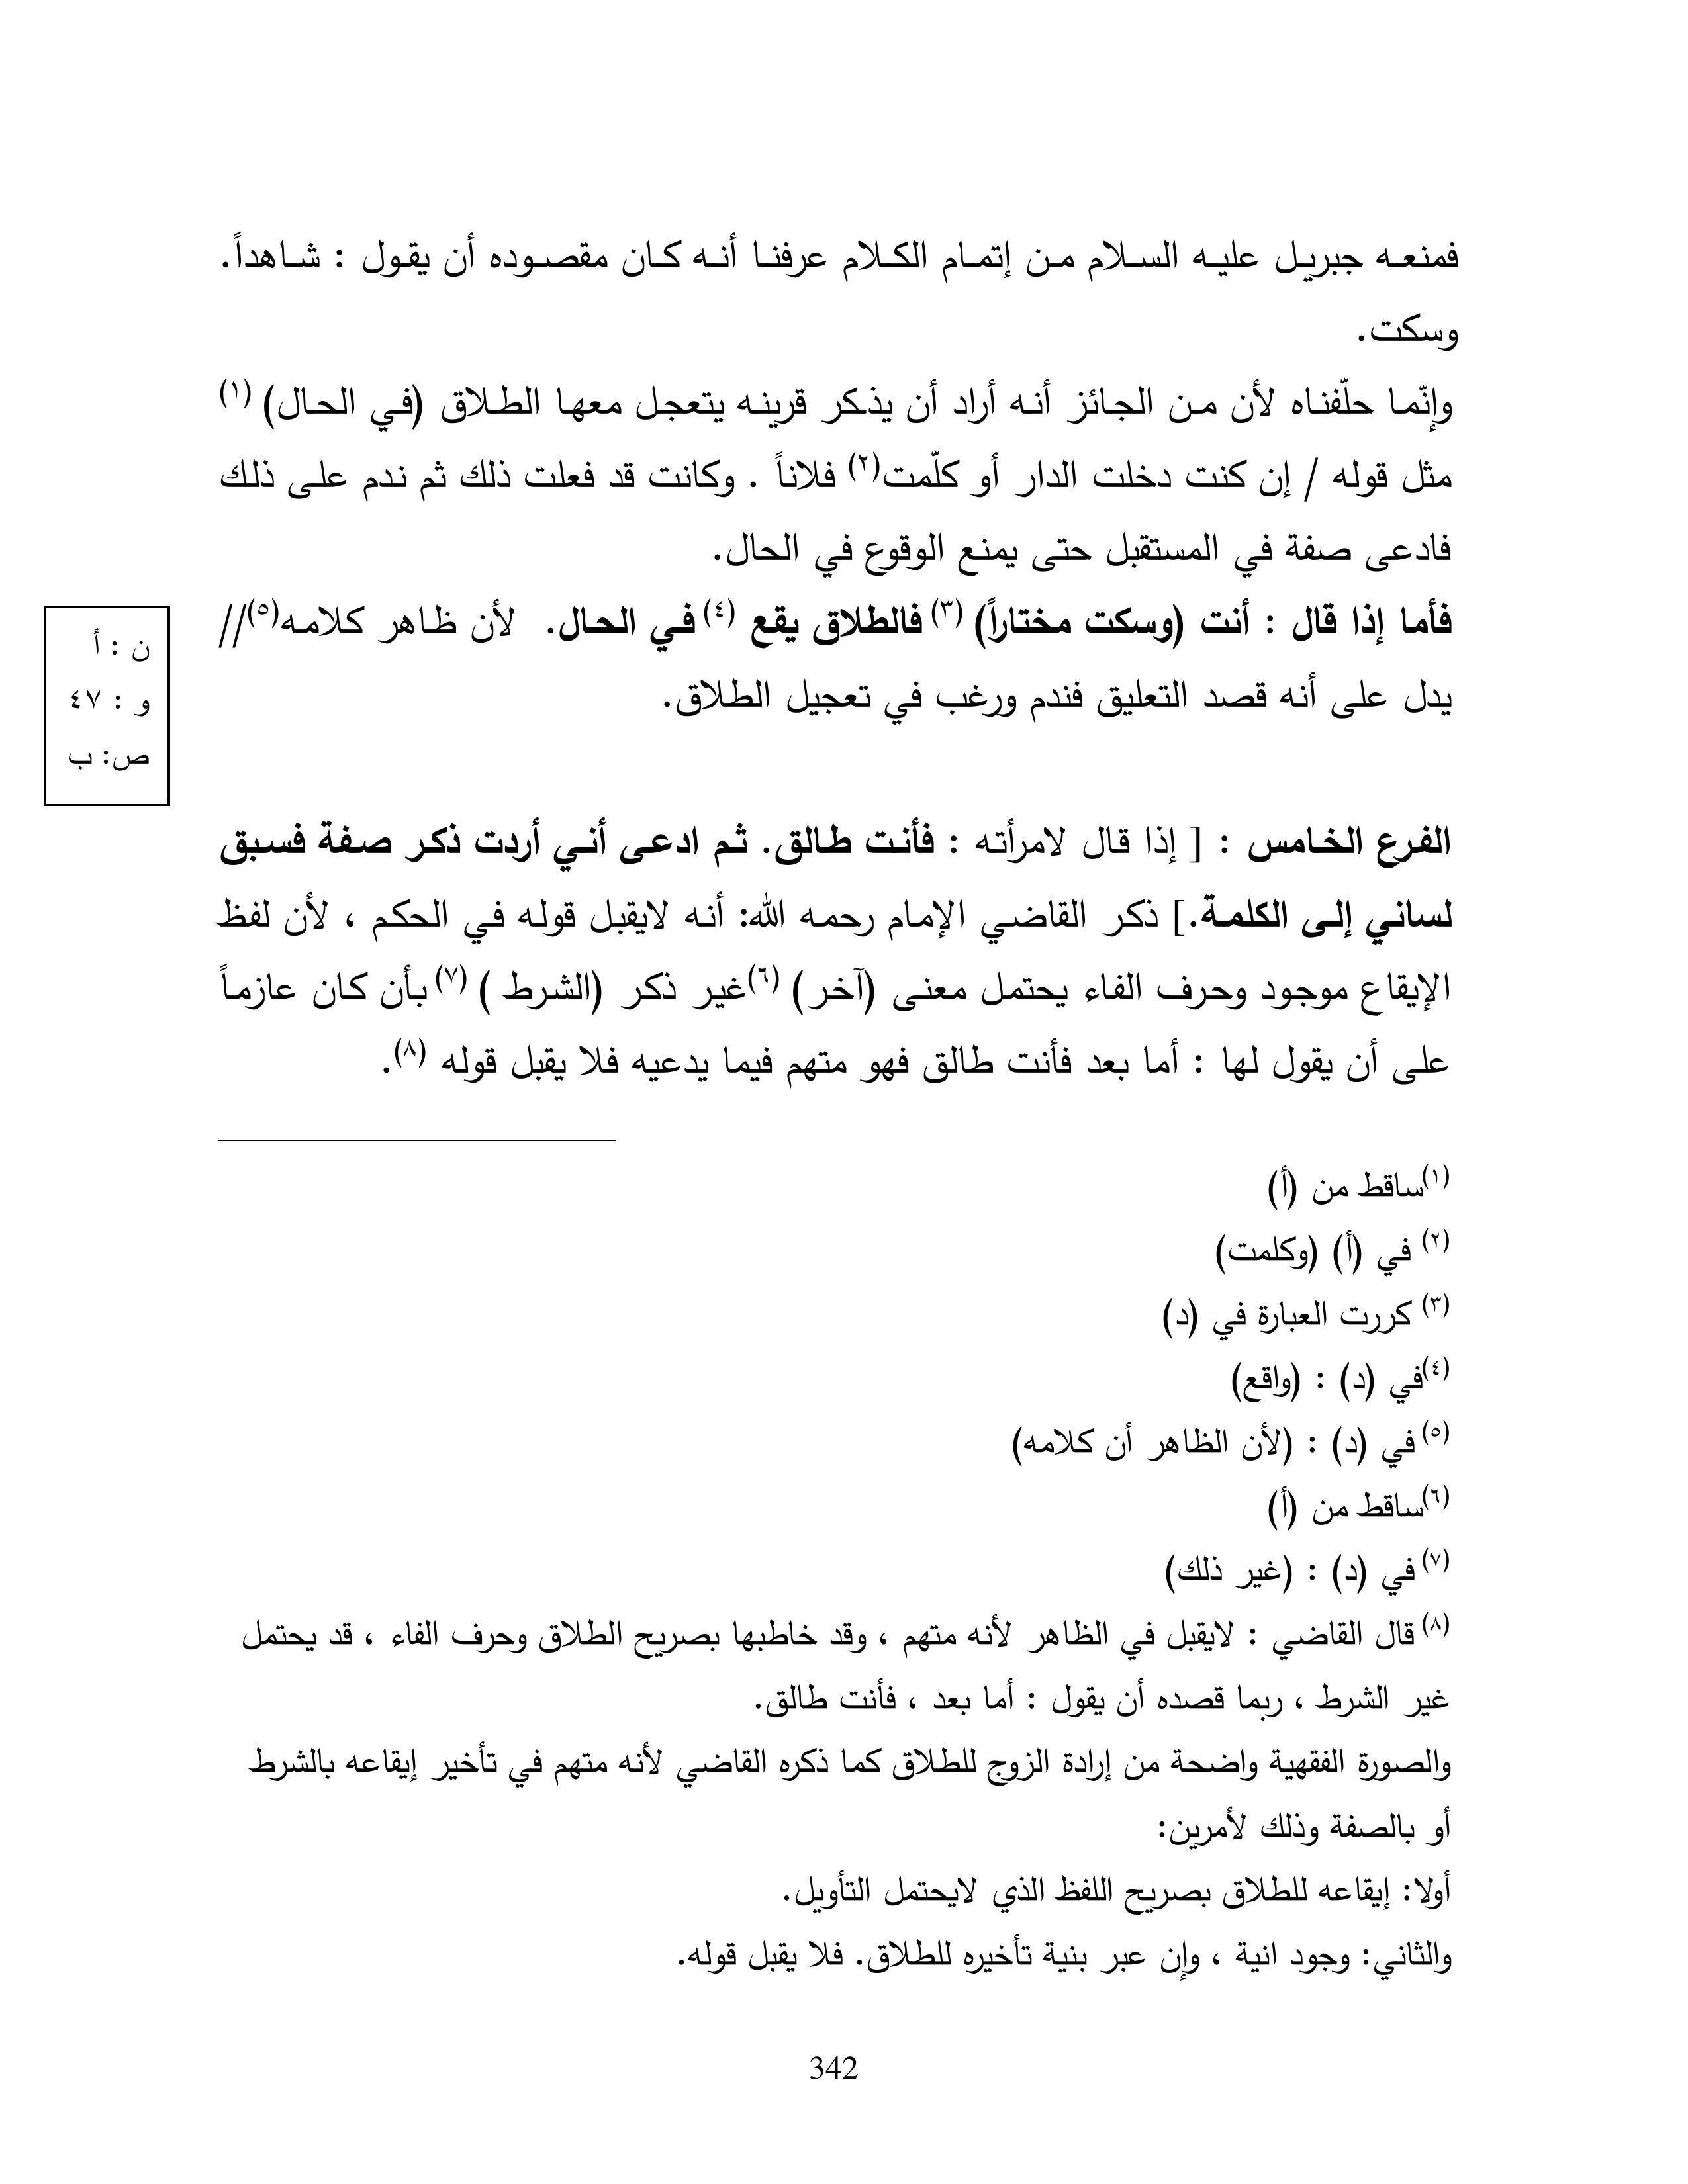 فمنعه جبريل عليه السلام من إتمام الكلام عرفنا أنه كان مقصوده أن يقول : شاهداً.
وسكت.
وإنّما حلّفناه لأن من الجائز أنه أراد أن يذكر قرينه يتعجل معها الطلاق (في الحال) (١)
مثل قوله / إن كنت دخلت الدار أو كلّمت(٢) فلاناً . وكانت قد فعلت ذلك ثم ندم على ذلك
فادعى صفة في المستقبل حتى يمنع الوقوع في الحال.
فأما إذا قال : أنت (وسكت مختاراً) (٣) فالطلاق يقع (٤) في الحال. لأن ظاهر كلامه(٥)//
يدل على أنه قصد التعليق فندم ورغب في تعجيل الطلاق.
ن : أ
و : ٤٧
ص: ب
الفرع الخامس : [ إذا قال لامرأته : فأنت طالق. ثم ادعى أني أردت ذكر صفة فسبق
لساني إلى الكلمة.] ذكر القاضي الإمام رحمه الله: أنه لايقبل قوله في الحكم ، لأن لفظ
الإيقاع موجود وحرف الفاء يحتمل معنى (آخر) (٦)غير ذكر (الشرط ) (٧) بأن كان عازماً
على أن يقول لها : أما بعد فأنت طالق فهو متهم فيما يدعيه فلا يقبل قوله (٨).
(١)ساقط من (أ)
(٢) في (أ) (وكلمت)
(٣) كررت العبارة في (د)
(٤)في (د) : (واقع)
(٥) في (د) : (لأن الظاهر أن كلامه)
(٦)ساقط من (أ)
(٧) في (د) : (غير ذلك)
(٨) قال القاضي : لايقبل في الظاهر لأنه متهم ، وقد خاطبها بصريح الطلاق وحرف الفاء ، قد يحتمل
غير الشرط ، ربما قصده أن يقول : أما بعد ، فأنت طالق.
والصورة الفقهية واضحة من إرادة الزوج للطلاق كما ذكره القاضي لأنه متهم في تأخير إيقاعه بالشرط
أو بالصفة وذلك لأمرين:
أولا: إيقاعه للطلاق بصريح اللفظ الذي لايحتمل التأويل.
والثاني: وجود انية ، وإن عبر بنية تأخيره للطلاق. فلا يقبل قوله.
342